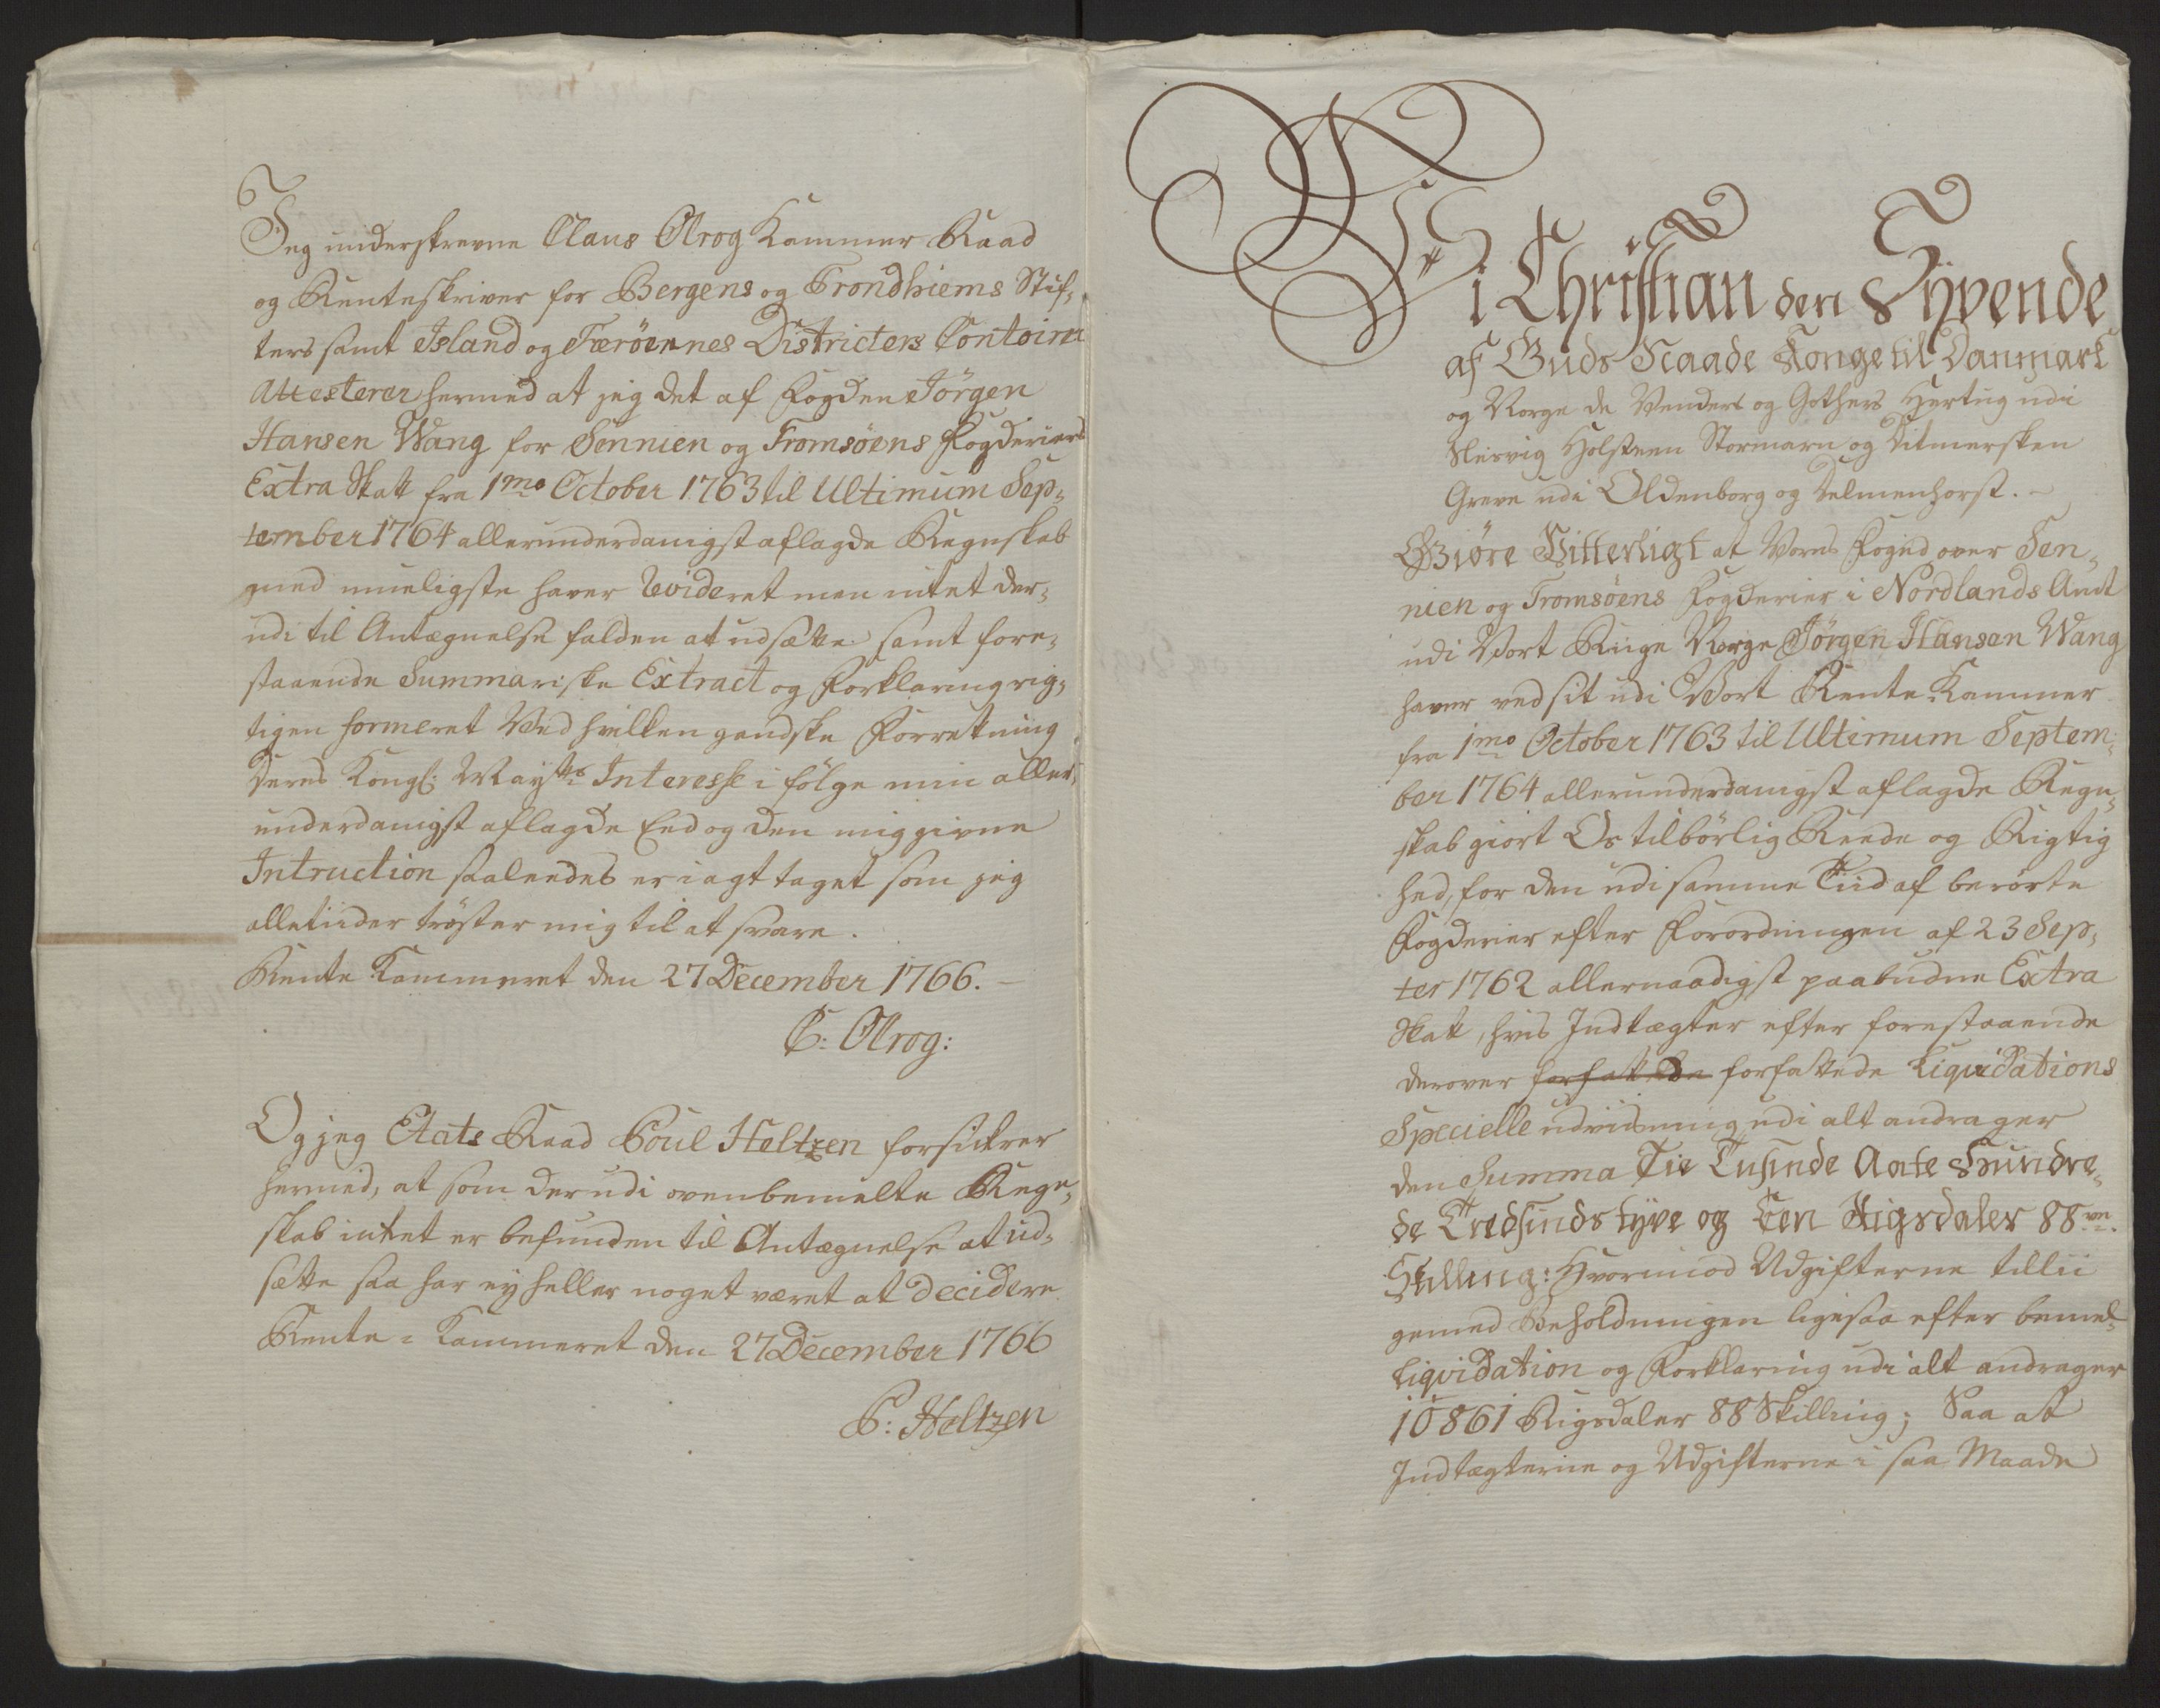 Jeg underskrevne Claus Olrog Kammer Raad
og Renteskriver for Bergens og Trondhiems Stif-
ters samt Island og Færöernes Districters Contoirer
Attesterer hermed at jeg det af Fogden Jörgen
Hansen Wang for Sennien og Tromsöens Fogderiers
Extra Skatt fra 1mo October 1763 til Ultimum Sep-
tember 1764 allerunderdanigst aflagde Regnskab
med mueligste haver Revideret men intet der-
udi til Antægnelse falden at udsætte samt fore-
staaende Summariske Extract og Forklaring rig-
tigen formeret Ved hvilken gandske Forretning
Deres Kongl: Maytts Interesse i fölge min aller-
underdanigst aflagde Eed og den mig givne
Intruction saaledes er iagttaget som jeg
alletiider tröster mig til at svare.
Rente Kammeret den 27 December 1766. –
C: Olrog:
Og jeg Etats Raad Poul Heltzen forsickrer
hermed, at som derudi ovenbemelte Regn-
skab intet er befunden til Antægnelse at ud-
sætte saa har ey heller noget været at Decidere
Rente-Kammeret den 27 December 1766
P: Heltzen
Vi Christian den Syvende
af Guds Naade Konge til Danmark
og Norge de Venders og Gothers Hertug udi
Slesvig Holsteen Stormarn og Ditmersken
Greve udi Oldenborg og Delmenhorst. –
Giöre Vitterligt at Vores Foged over Sen-
nien og Tromsöens Fogderier i Nordlands Amt
udi Vort Riige Norge Jörgen Hansen Wang
haver ved sit udi Vort Rente Kammer
fra 1mo October 1763 til Ultimum Septem-
ber 1764 allerunderdanigst aflagde Regn-
skab giort Os tilbörlig Reede og Rigtig
hed, for den udi samme Tiid af berörte
Fogderier efter Forordningen af 23 Sep-
ter 1762 allernaadigst paabudne Extra
Skatt, hvis Indtægter efter forestaaende
derover forfattede forfattede Liqvidations
Specielle udviisning udi alt andrager
den Summa Tie Tusinde Aate Hundre-
de Tredsindstyve og Een Rigsdaler 88ve.
Skilling: Hvorimod Udgifterne tillii
gemed Beholdningen ligesaa efter bemel-
Liqvidation og Forklaring udi alt andrager
10861 Rigsdaler 88 Skilling; Saa at
Indtægterne og Udgifterne i saa Maade